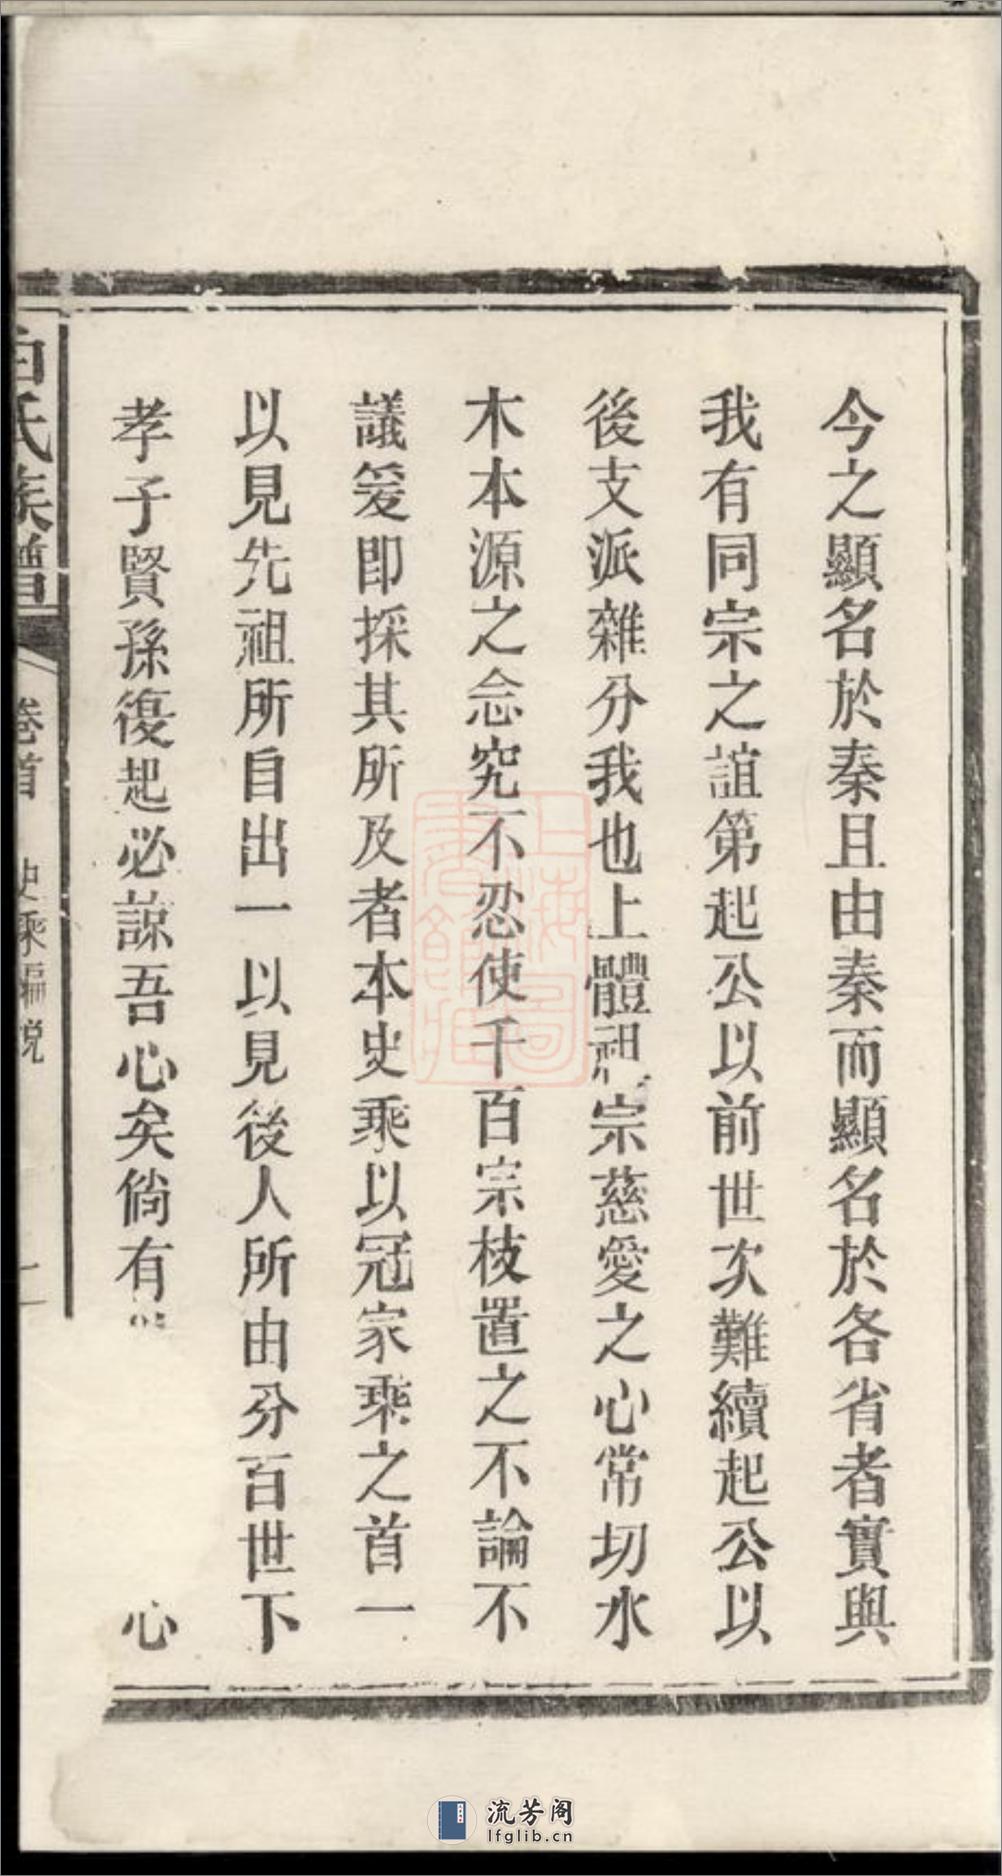 今之顯名於秦且由秦而顯名於各省者實與
我有同宗之誼第起公以前世次難續起公以
後支派雜分我也上體祖宗慈愛之心常切水
木本源之念究不忍使千百宗枝置之不論不
議爰即採其所及者本史乘以冠家乘之首一
以見先祖所自出一以見後人所由分百世下
孝子賢孫復起必諒吾心矣倘有
心
氏族譜
卷首
史乘編說
上海圖書館藏
流芳阁
lfglib.cn